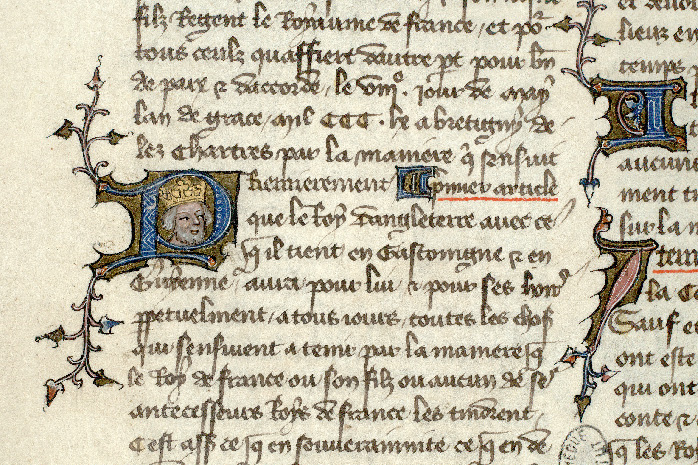 filz Regent le Royaume de france, et por
tous ceulz quaffiert dautre pt pour bn
de paix & daccorde, le viije. jour de may
lan de grace, Mil CCC. lx a bretigny de
lez Chartres par la maniere q sensuit
Premierement primer article
que le Roy dangleterre avec ce
q il tient en Gascoingne & en
Guyenne, aura pour lui, & pour ses hoirs
ppetuelment, a tous jours, toutes les choses
qui sensivent a tenir par la maniere q
le Roy de france ou son filz ou aucun de ses
antecesseurs Roys de france les tindrent,
Cest ass ce q en souverainnite ce q en de
et devoi
lieux en
temps p
I
aucune
ment t
sur la m
Item
la Ce
Sauf e
ont este
qui ont
conte &
q les Ro